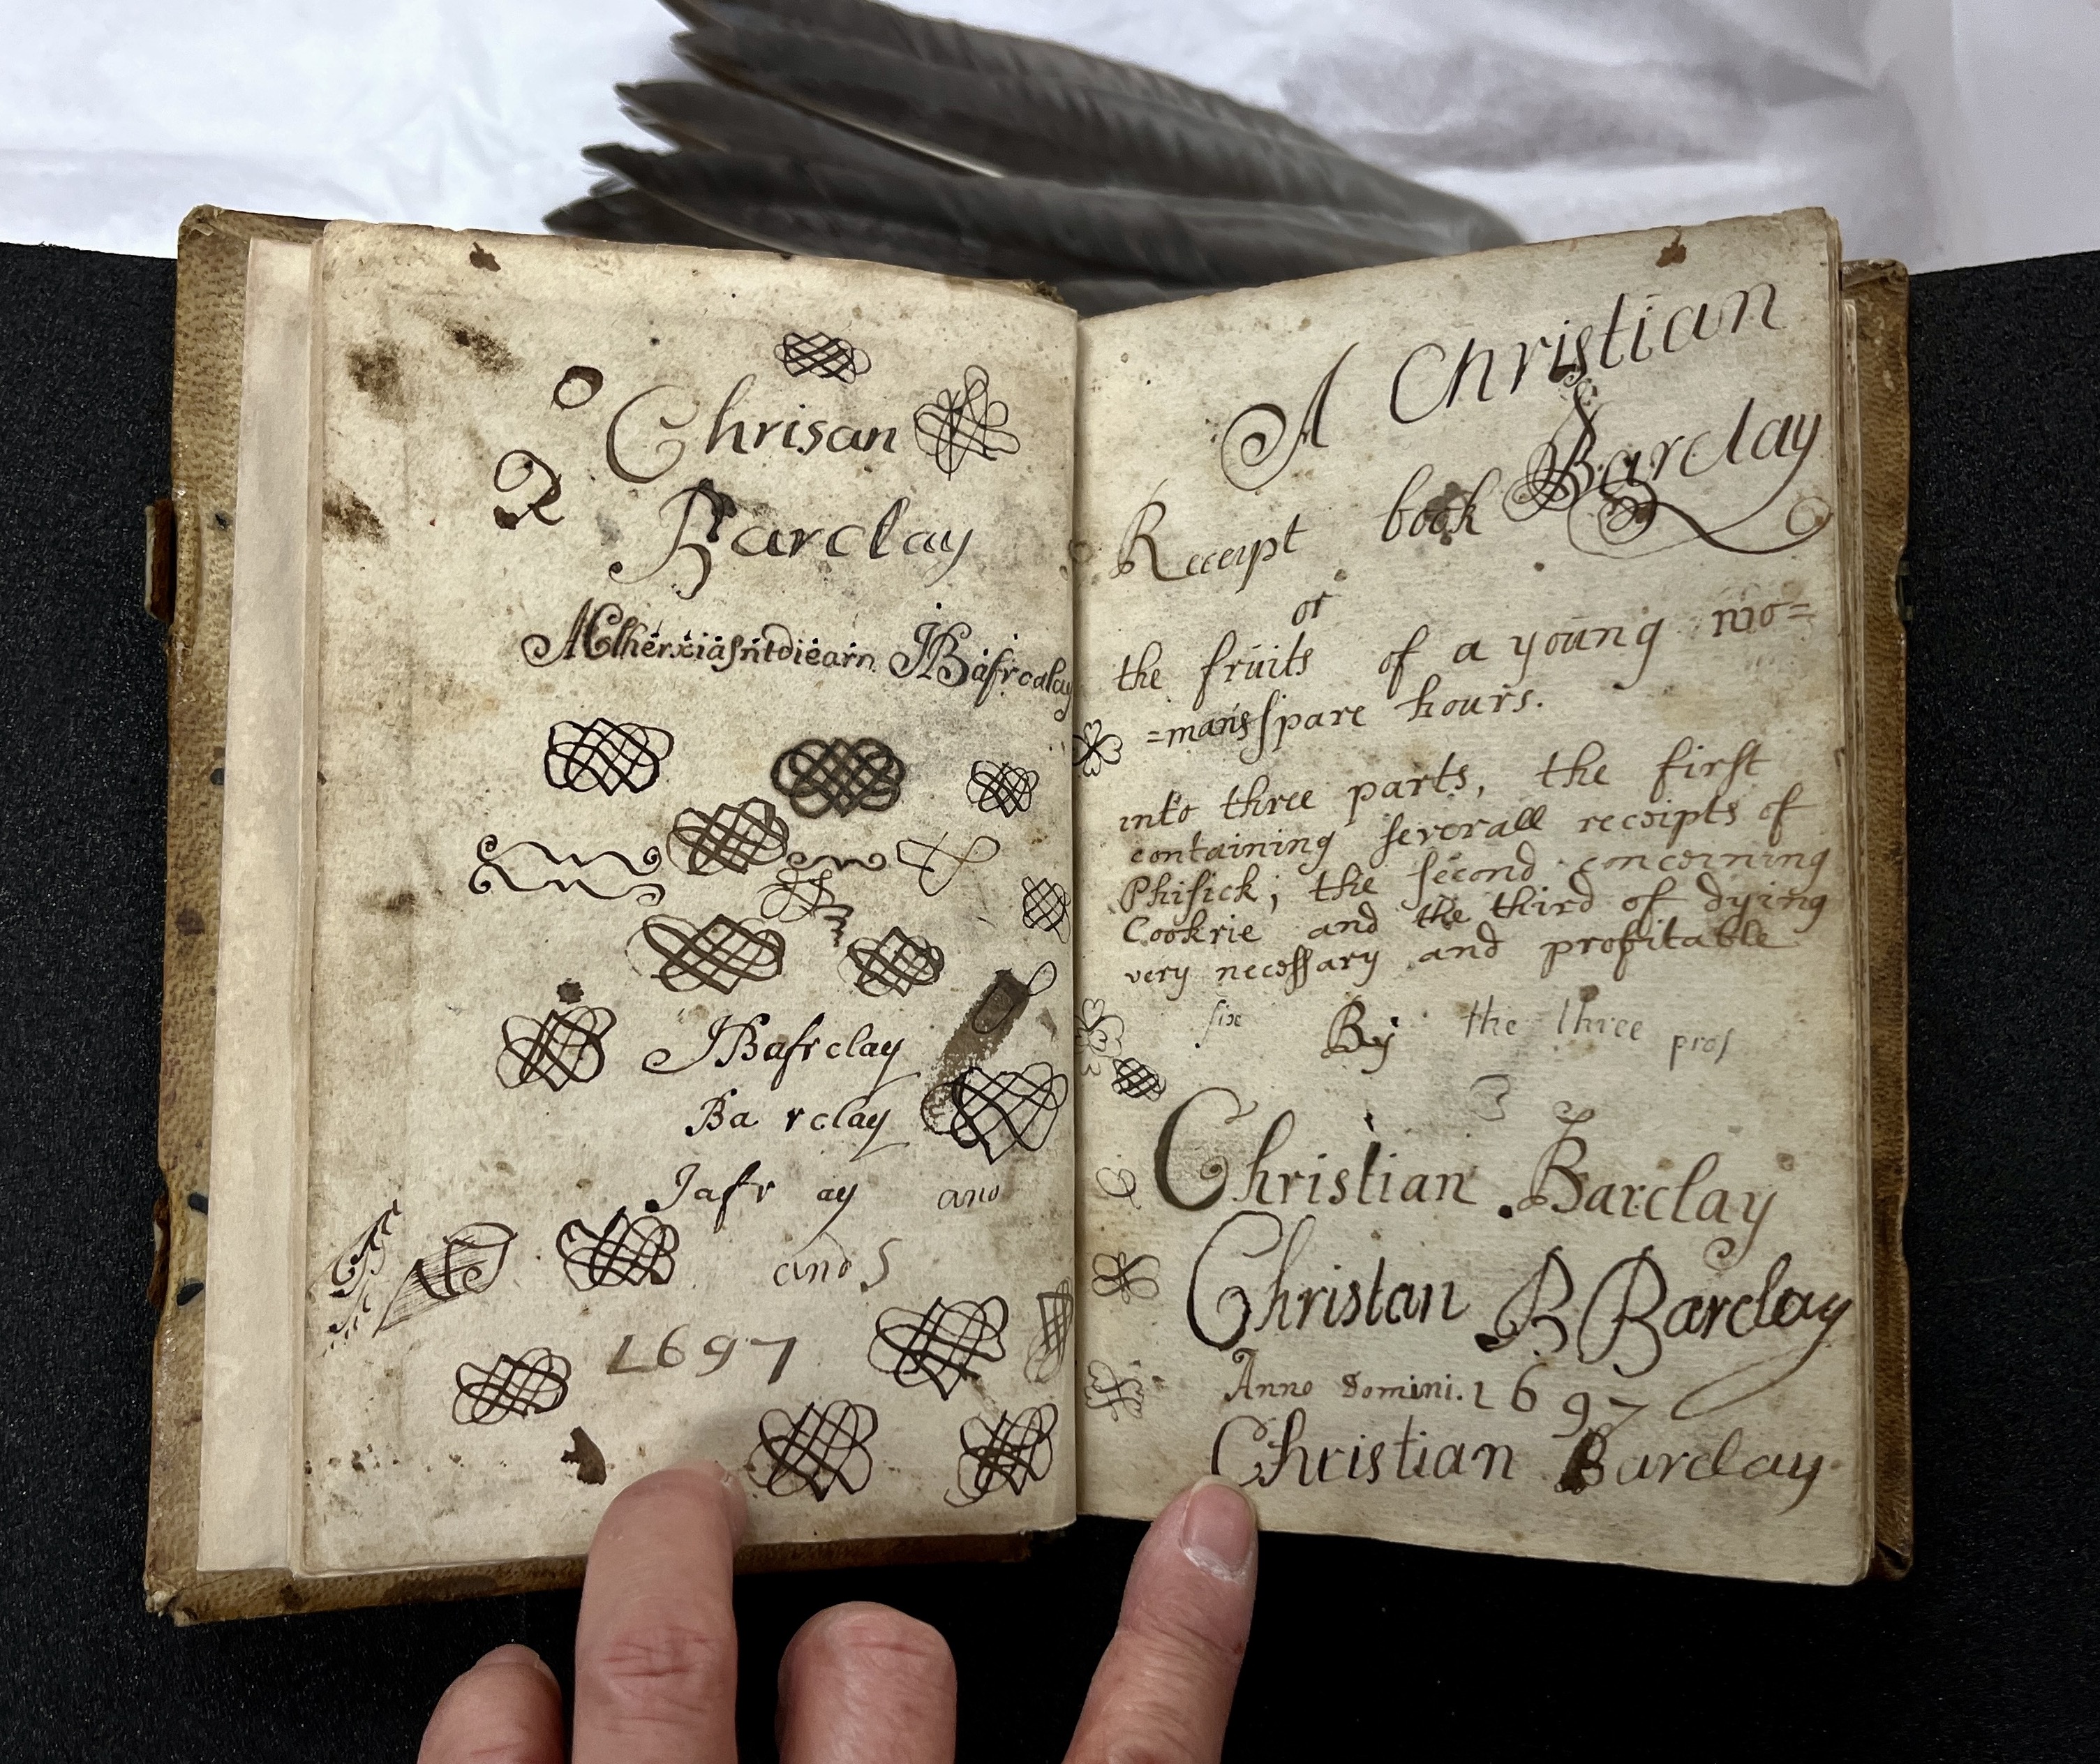 Chrisan
Barclay
JBafrclay
Ba rclay
Jafr ay ano
ano S
1697
A Christian
Barclay
Receipt book
or
the fruits of a young wo=
=mans ſpare hours.
into three parts, the firſt
containing ſeverall receipts of
Phiſick; the ſecond concerning
Cookrie and the third of dying
very neceſſary and profitable
ſix By the three prof
3
Christian Barclay
Christan B Barclay
Anno Domini. 1697
Christian Barclay